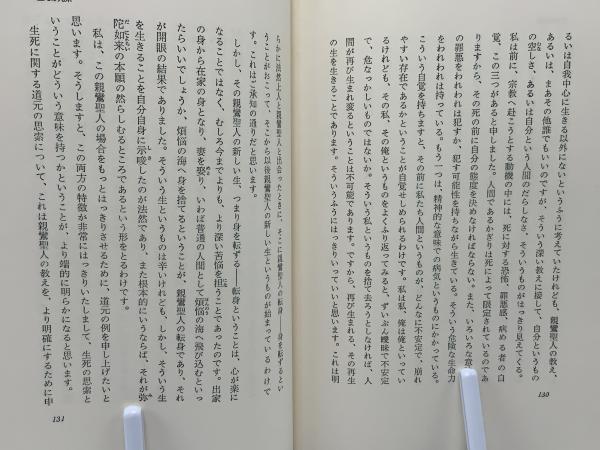 るいは自我中心に生きる以外にないというふうに考えていたけれども、親鸞聖人の教え、
あるいは、まあその他誰でもいいのですが、そういう深い教えに接して、自分というもの
の空しさ、あるいは自分という人間のだらしなさ、そういうものがはっきり見えてくる。
私は前に、宗教へ赴こうとする動機の中には、死に対する恐怖、罪悪感、病める者の自
覚、この三つがあると申しました。人間であるかぎりは死によって限定されているのであ
りますから、その死の前に自分の態度を決めなければならない。また、いろいろな意
の罪悪をわれわれは犯すか、犯す可能性を持ちながら生きている。そういう危険な生命力
をわれわれは持っている。もう一つは、精神的な意味での病気というものにかかっている。
こういう自覚を持ちますと、その前に私たち人間というものが、どんなに不安定で、崩れ
やすい存在であるかということが自覚せしめられるわけです。私は私、俺は俺といってい
るけれども、その私、その俺というものをよくふり返ってみると、ずいぶん曖昧で不安定
で、危なっかしいものではないか。そういう私というものを捨て去ろうとしなければ、人
間が再び生まれ変るということは不可能であります。ですから、再び生まれる、その再生
の生を生きることであります。そういうふうにはっきりいっていいと思います。これは明
130
らかに法然上人と親鸞聖人と出会ったときに、そこに親鸞聖人の転身――身を転ずるとい
うことがおこって、そこから以後親鸞聖人の新しい生というものが始まっているわけで
す。これはご承知の通りだと思います。
しかし、その親鸞聖人の新しい生、つまり身を転ずる――転身ということは、心が楽に
なることではなく、むしろ今までよりも、より深い苦悩を担うことであったのです。出家
の身から在家の身となり、妻を娶り、いわば普通の人間として煩悩の海へ飛び込むといっ
たらいいでしょうか、煩悩の海へ身を捨てるということが、親鸞聖人の転身であり、それ
が開眼の結果でありました。そういう生というものは辛いけれども、しかし、そういう生
を生きることを自分自身に示唆したのが法然であり、また根本的にいうならば、それが弥
陀如来の本願の然らしむるところであるという形をとるわけです。
私は、この親鸞聖人の場合をもっとはっきりさせるために、道元の例を申し上げたいと
思います。そうしますと、この両方の特徴が非常にはっきりいたしまして、生死の思索と
いうことがどういう意味を持つかということが、より端的に明らかになると思います。
生死に関する道元の思索について、これは親鸞聖人の教えを、より明確にするために申
131